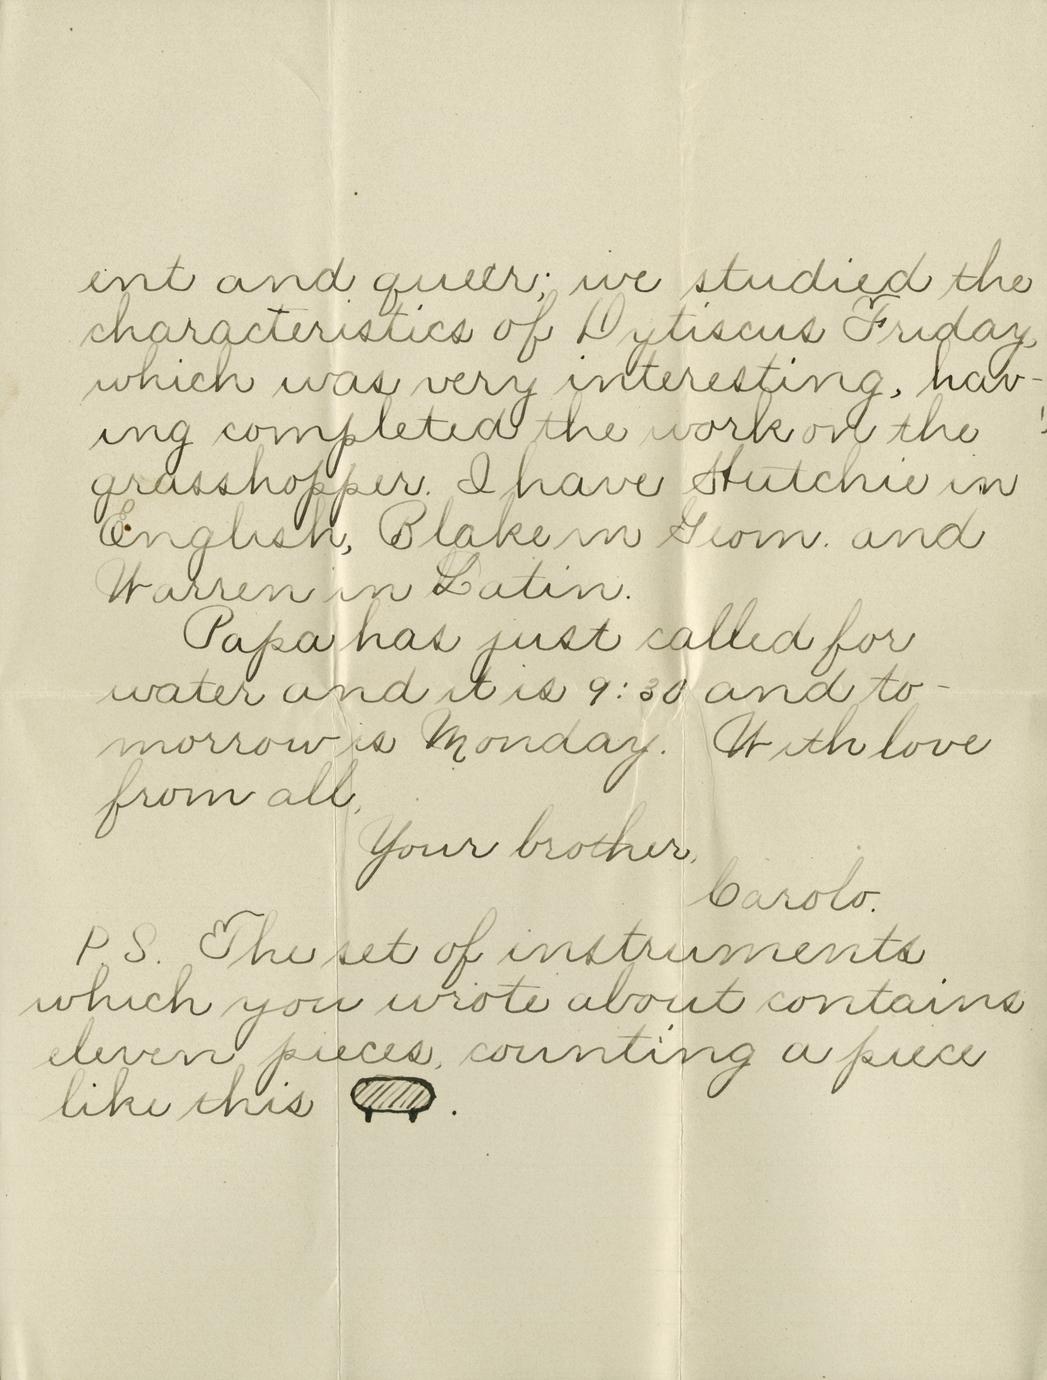 ent and queer; we studied the
characteristics of Dytiscus Friday,
which was very interesting, hav-
ing completed the work on the
grasshopper. I have Hutchie in
English, Blake in Geom. and
Warren in Latin.
Papa has just called for
water and it is 9:30 and to-
morrow is Monday. With love
from all,
Your brother,
Carolo.
P.S. The set of instruments
which you wrote about contains
eleven pieces, counting a piece
like this .